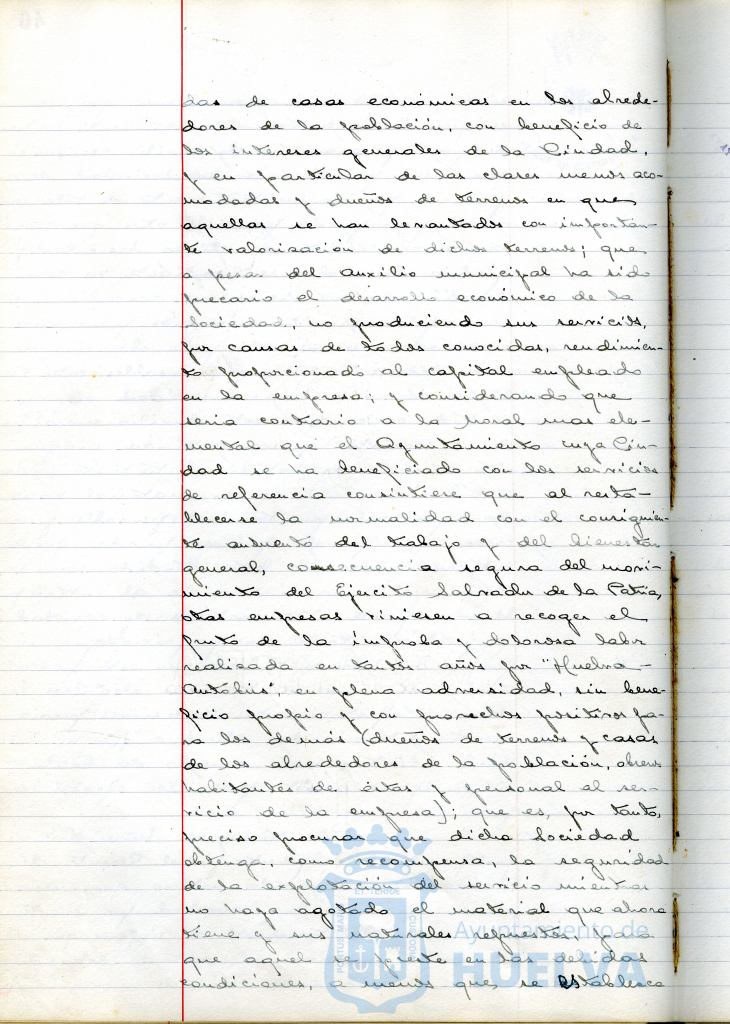 das de casas económicas en los alrede-
dores de la población, con beneficio de
los intereses generales de la Ciudad,
y en particular de las clases menos aco-
modadas y dueños de terrenos en que
aquellas se han levantados con importan-
te valorización de dichos terrenos; que
a pesar del auxilio municipal ha sido
precario el desarrollo económico de la
Sociedad, no produciendo sus servicios,
por causas de todos conocidas, rendimien-
to proporcionado al capital empleado
en la empresa; y considerando que
seria contrario a la moral mas ele-
mental que el Ayuntamiento cuya Ciu-
dad se ha beneficiado con los servicios
de referencia consintiese que al resta-
blecerse la normalidad con el consiguien-
te aumento del trabajo y del bienestar
general, consecuencia segura del movi-
miento del Ejercito Salvador de la Patria,
otras empresas viniesen a recoger el
fruto de la improba y dolorosa labor
realizada en tantos años por "Huelva-
Autobús", en plena adversidad, sin bene-
ficio propio y con provechos positivos pa-
ra los demás (dueños de terrenos y casas
de los alrededores de la población, obreros
habitantes de éstas y personal al ser-
vicio de la empresa); que es, por tanto,
preciso procurar que dicha Sociedad
obtenga, como recompensa, la seguridad
de la explotación del servicio mientras
no haya agotado el material que ahora
tiene y sus naturales repuestos, y a
que aquel se preste en las debidas
condiciones, a menos que se establezca
Ayuntamiento de
HUELVA